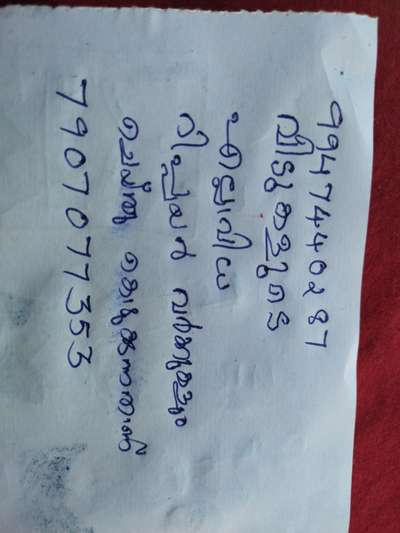 9947440287
വീടുകളുടെ
എല്ലാവിധ
റിപ്പയർ വർക്കുകളും
ചെയ്തു കൊടുക്കുന്നു
7907077353